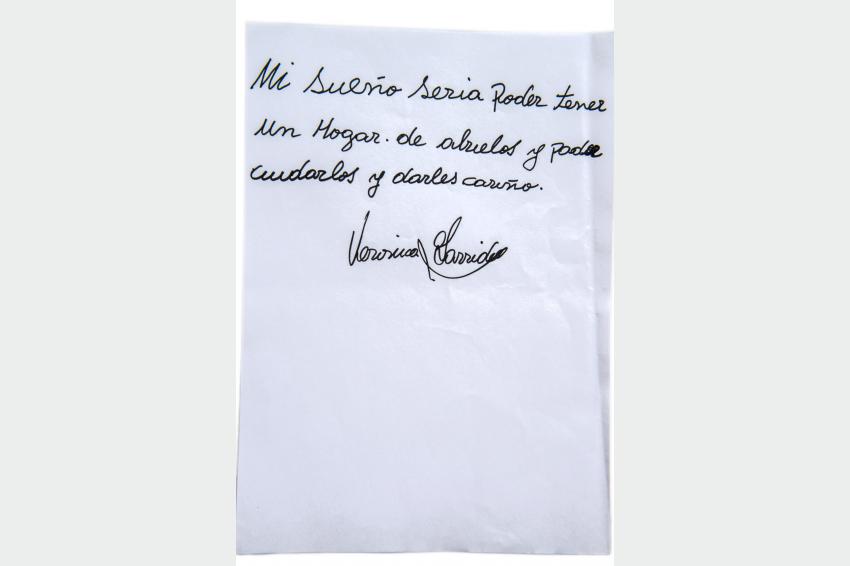 Mi sueño seria poder tener
un Hogar. de abuelos y poder
cuidarlos y darles cariño.
Veronica Garrido